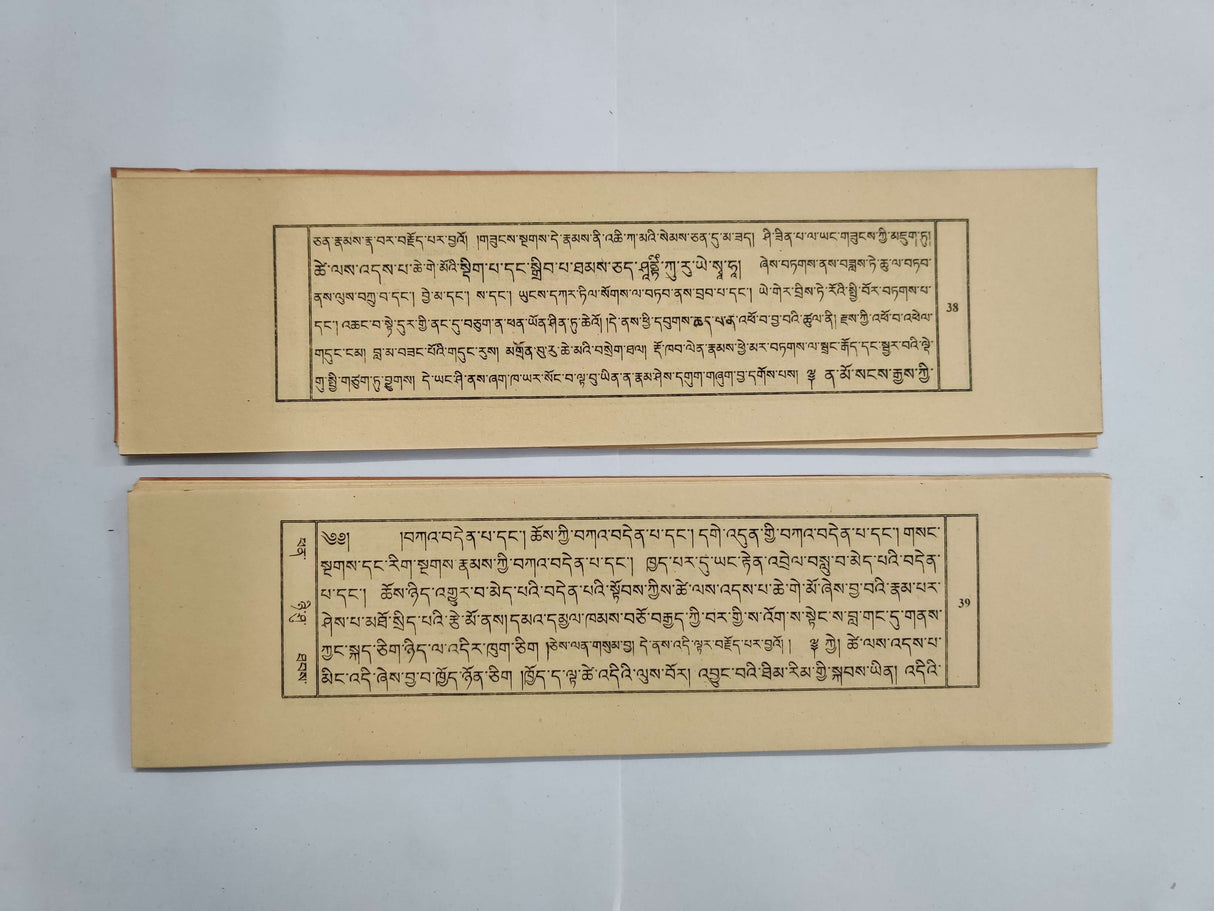 ཅན་རྣམས་རྣ་བར་བརྗོད་པར་བྱའོ། །གཟུངས་སྔགས་དེ་རྣམས་ནི་འཆི་ཀ་མའི་སེམས་ཅན་དུ་མ་ཟད། ཤི་ཟིན་པ་ལ་ཡང་གཟུངས་ཀྱི་མདུག་ཏུ།
ཚེ་ལས་འདས་པ་ཆེ་གེ་མོའི་སྡིག་པ་དང་སྒྲིབ་པ་ཐམས་ཅད་ ཀུ་རུ་ཡེ་སྭཱ་ཧཱ། ཞེས་བཏགས་ནས་བཟླས་ཏེ་ཆུ་ལ་བཏབ་
ནས་ལུས་བཀྲུ་བ་དང་། བྱེ་མ་དང་། ས་དང་། ཡུངས་དཀར་ཏིལ་སོགས་ལ་བཏབ་ནས་བྲབ་པ་དང་། ཡི་གེར་བྲིས་ཏེ་རོའི་སྤྱི་བོར་བཏགས་པ་
དང་། འཆང་བ་སྟེ་དུར་གྱི་ནང་དུ་བཅུག་ན་ཕན་ཡོན་ཤིན་ཏུ་ཆེའོ། །དེ་ནས་ཕྱི་དབུགས་ཆད་པ་ན་འཕོ་བ་བྱ་བའི་ཚུལ་ནི། རྫས་ཀྱི་འཕོ་བ་འཕེལ་
གདུང་ངམ། བླ་མ་བཟང་པོའི་གདུང་རུས། མགྲོན་བུ་རུ་ཆེ་མའི་བསྲེག་ཐལ། རྡོ་ཁབ་ལེན་རྣམས་ཕྱེ་མར་བཏགས་ལ་སྦྲང་རྒོད་དང་སྦྱར་བའི་ལྡེ་
གུ་སྤྱི་གཙུག་ཏུ་བྱུགས། དེ་ཡང་ཤི་ནས་ཞག་ཁ་ཡར་སོང་བ་ལྟ་བུ་ཡིན་ན་རྣམ་ཤེས་དགུག་གཞུག་བྱ་དགོས་པས། ༈ ན་མོ་སངས་རྒྱས་ཀྱི་
38
༄༅། །བཀའ་བདེན་པ་དང་། ཆོས་ཀྱི་བཀའ་བདེན་པ་དང་། དགེ་འདུན་གྱི་བཀའ་བདེན་པ་དང་། གསང་
སྔགས་དང་རིག་སྔགས་རྣམས་ཀྱི་བཀའ་བདེན་པ་དང་། ཁྱད་པར་དུ་ཡང་རྟེན་འབྲེལ་བསླུ་བ་མེད་པའི་བདེན་
པ་དང་། ཆོས་ཉིད་འགྱུར་བ་མེད་པའི་བདེན་པའི་སྟོབས་ཀྱིས་ཚེ་ལས་འདས་པ་ཆེ་གེ་མོ་ཞེས་བྱ་བའི་རྣམ་པར་
ཤེས་པ་མཐོ་སྲིད་པའི་རྩེ་མོ་ནས། དམའ་དམྱལ་ཁམས་བཅོ་བརྒྱད་ཀྱི་བར་གྱི་ས་འོག་ས་སྟེང་ས་བླ་གང་དུ་གནས་
ཀྱང་སྐད་ཅིག་ཉིད་ལ་འདིར་ཁུག་ཅིག །ཅེས་ལན་གསུམ་བྱ། དེ་ནས་འདི་ལྟར་བརྗོད་པར་བྱའོ། ། ༈ ཀྱེ། ཚེ་ལས་འདས་པ་
མིང་འདི་ཞེས་བྱ་བ་ཁྱོད་ཉོན་ཅིག །ཁྱོད་ད་ལྟ་ཚེ་འདིའི་ལུས་བོར། འབྱུང་བའི་ཐིམ་རིམ་གྱི་སྐབས་ཡིན། འདིའི་
39